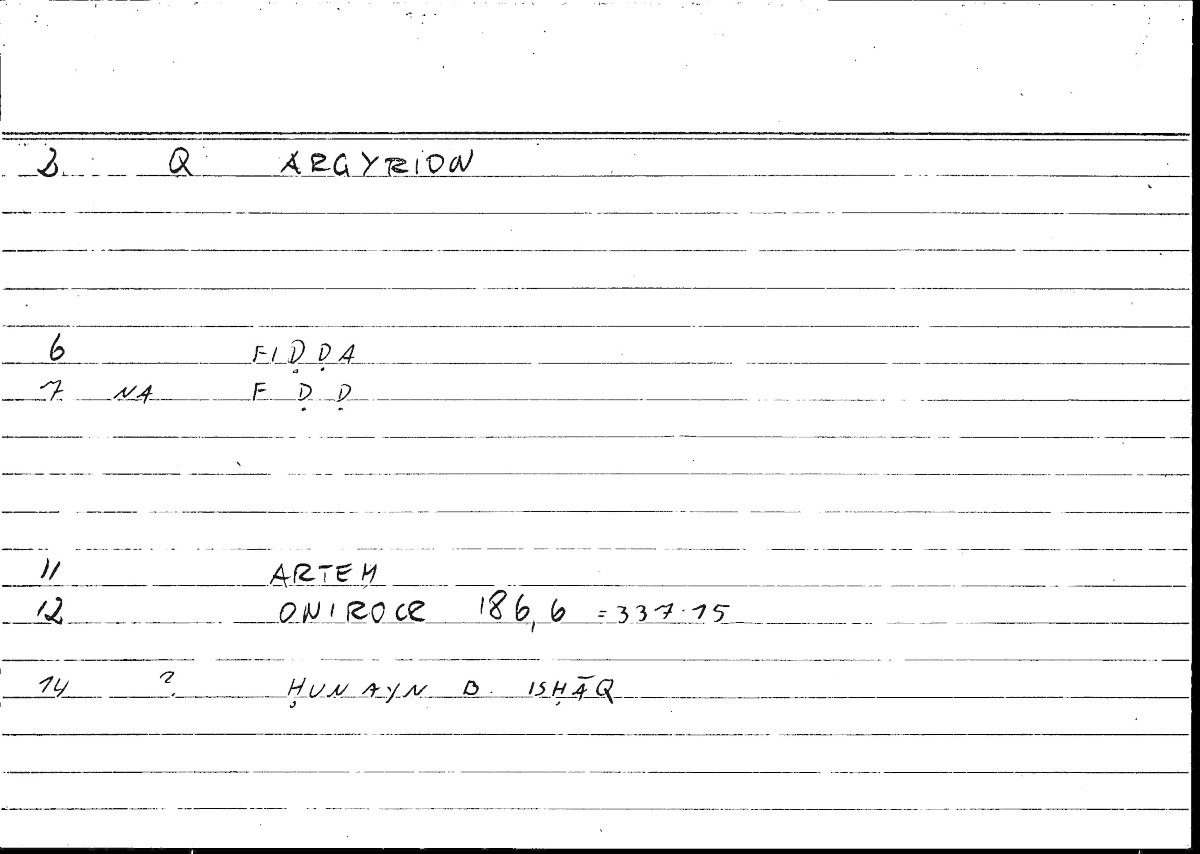 2 Q ARGYRION
6 FIḌḌA
7 NA F Ḍ Ḍ
11 ARTEM
12 ONIROCR 186,6 = 337.15
14 ? ḤUNAYN B. ISḤĀQ